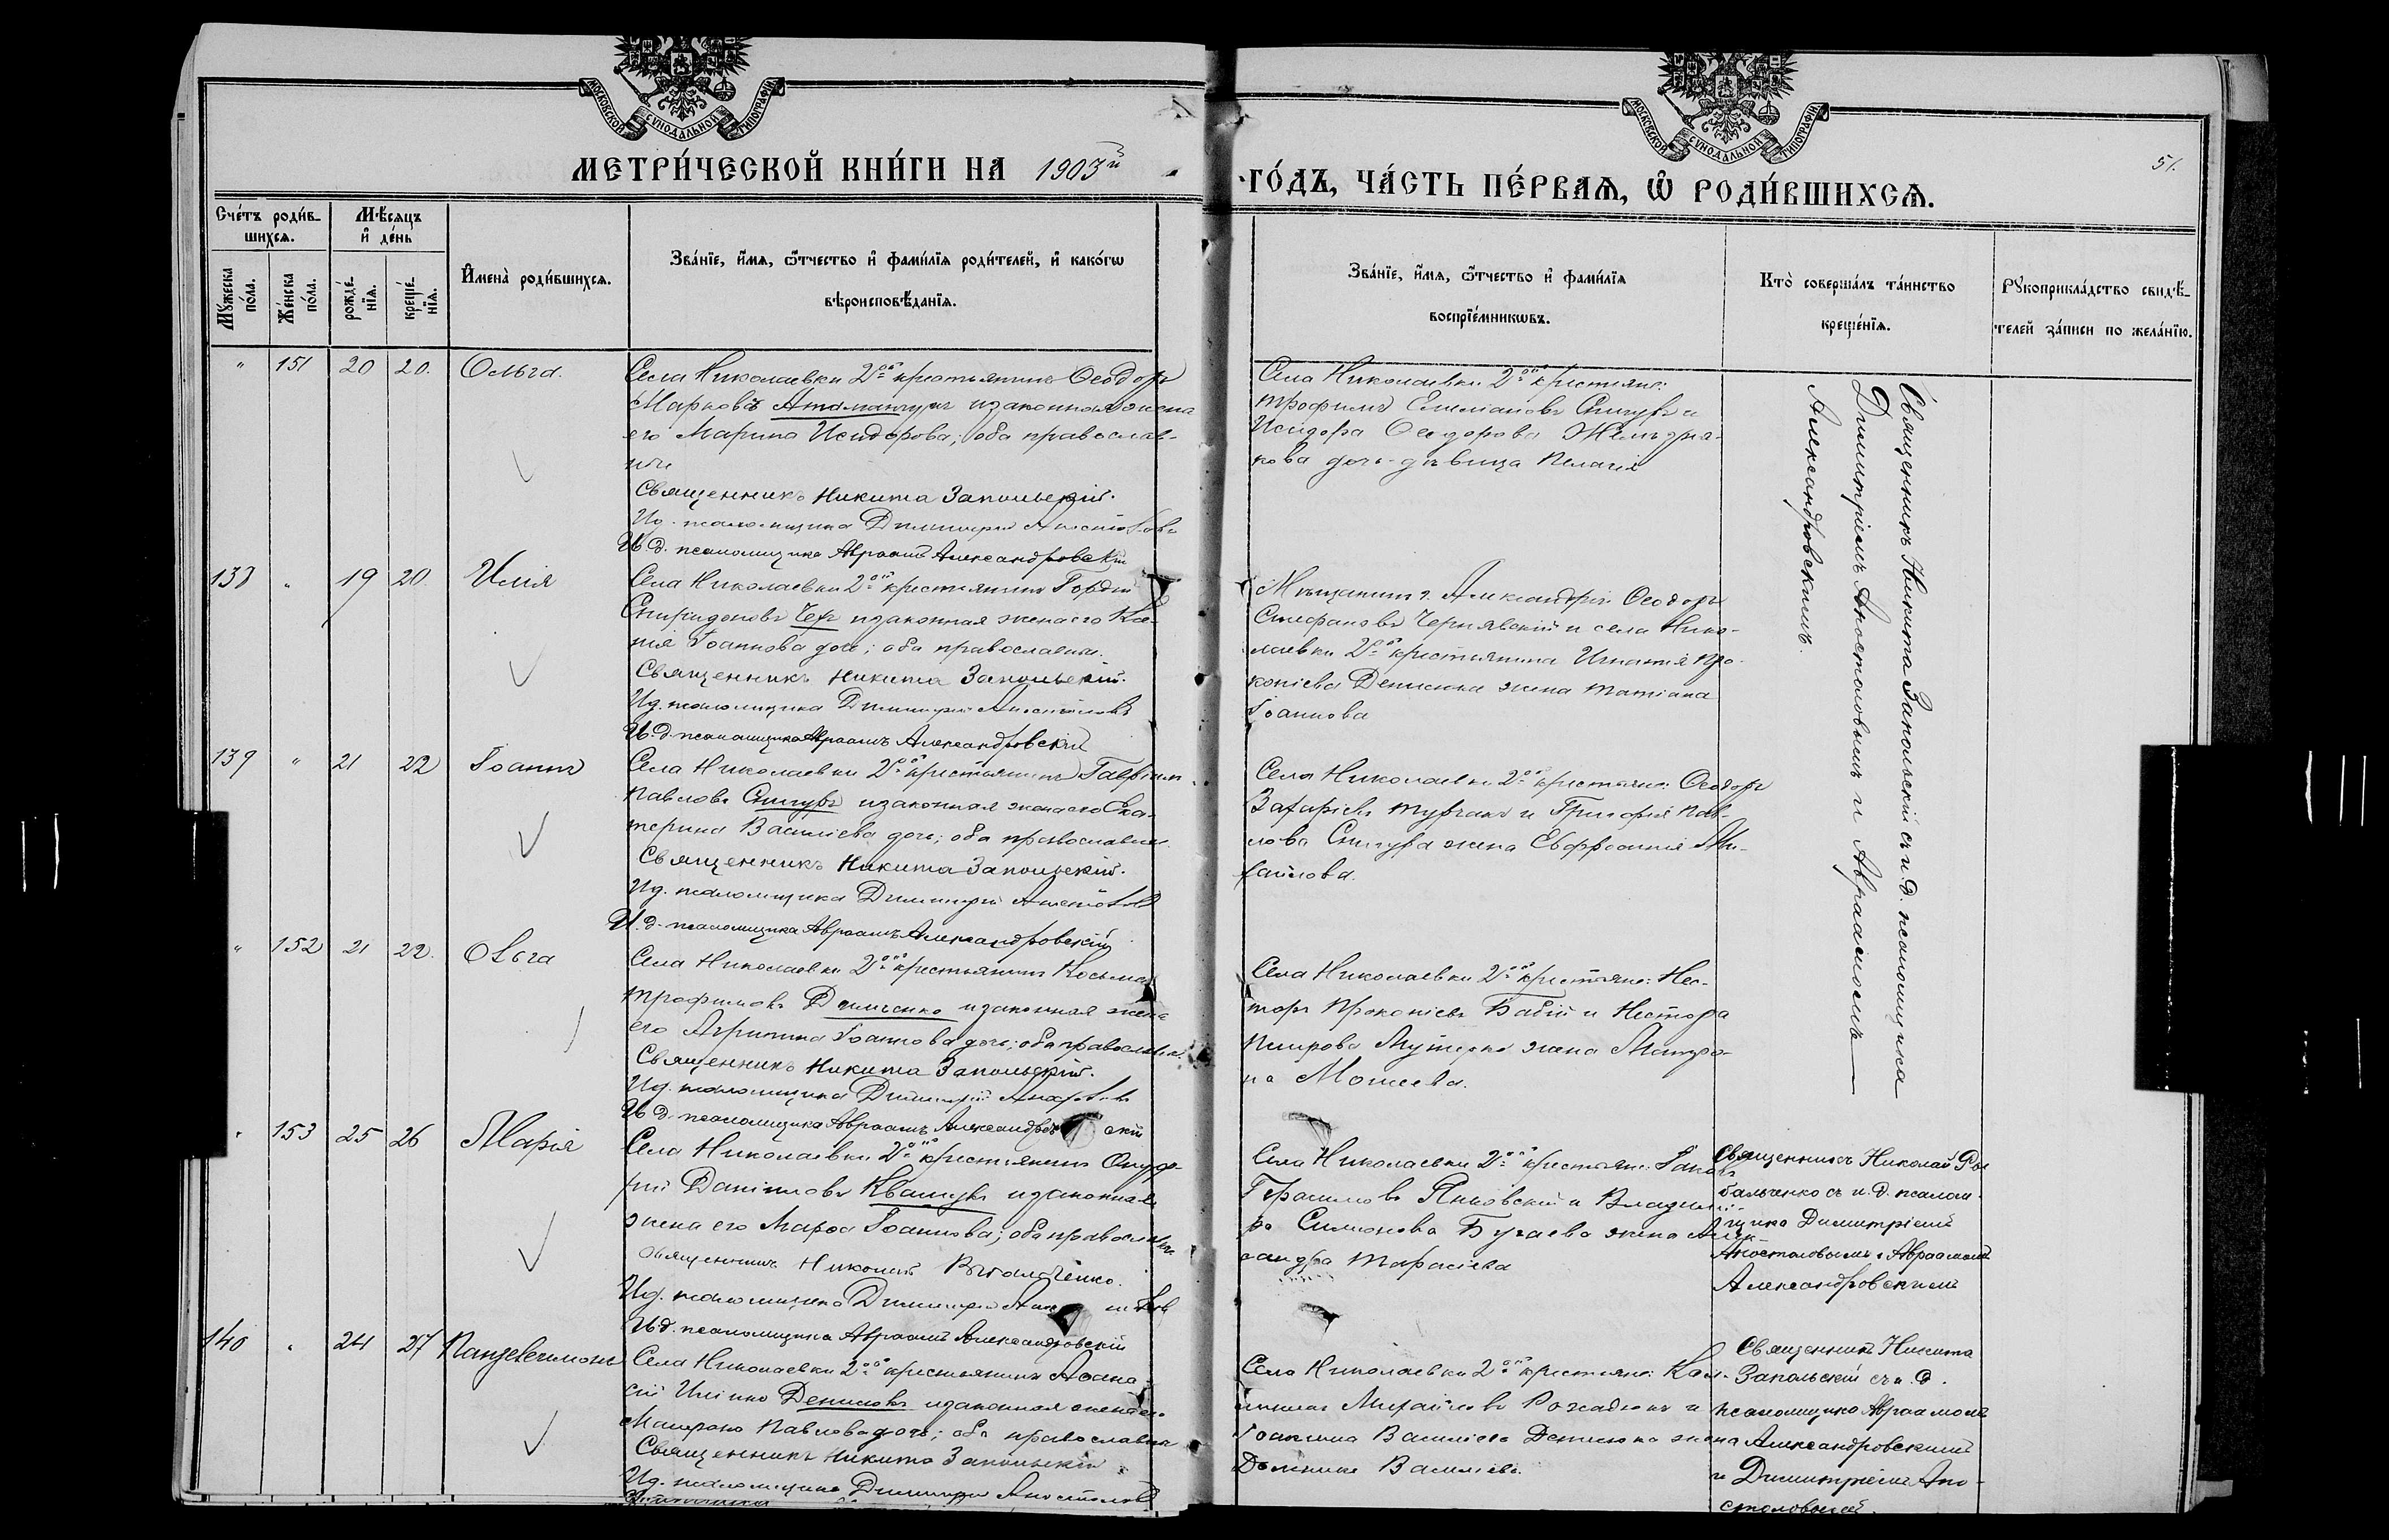 МОСКОВСКОЙ СѴНОДАЛЬНОЙ ТИПОГРАФІИ
МОСКОВСКОЙ СѴНОДАЛЬНОЙ ТИПОГРАФІИ
МЕТРИ́ЧЕСКОЙ КНИ́ГИ НА 1903й
ГО́ДЪ, ЧА́СТЬ ПЕ́РВАѦ, Ѡ РОДИ́ВШИХСѦ.
51.
Сче́тъ роди́в-
шихсѧ.
Мѣ́сѧцъ
и҆ де́нь
Мꙋ́жеска по́ла.
Же́нска по́ла.
рожде́-
нїѧ.
креще́-
нїѧ.
И҆мена̀ роди́вшихсѧ.
Зва́нїе, и҆́мѧ, ѻ҆́тчество и҆ фами́лїѧ роди́телей, и҆ како́гѡ
вѣроисповѣ́данїѧ.
Зва́нїе, и҆́мѧ, ѻ҆́тчество и҆ фами́лїѧ
воспрїе́мникѡвъ.
Кто̀ соверша́лъ та́инство
креще́нїѧ.
Рꙋкоприкла́дство свидѣ́-
телей за́писи по жела́нїю.
" 151 20 20. Ольга.
Села Николаевки 2ой крестьянинъ Ѳеодоръ
Марковъ Атаманчукъ и законная жена
его Марина Исидорова; оба православ-
ные
Священникъ Никита Запольскій.
И д. псаломщика Димитрій Апостоловъ
И. д. псаломщика Авраамъ Александровскій
Села Николаевки 2ой крестьяне:
Трофимъ Емиліановъ Снигуръ и
Исидора Ѳеодорова
кова дочь-дѣвица Пелагія
Священникъ Никита Запольскій съ и. д. псаломщика
Димитріемъ Апостоловымъ и Авраамомъ
Александровскимъ.
138 " 19 20. Илія
Села Николаевки 2ой крестьянинъ Гордій
Спиридоновъ и законная жена его Ксе-
нія Іоаннова дочь; оба православны.
Священникъ Никита Запольскій.
И д. псаломщика Димитрій Апостоловъ
И. д. псаломщика Авраамъ Александровскій
Мѣщанинъ г. Александріи Ѳеодоръ
Стефановъ Чернявскій и села Нико-
лаевки 2ой крестьянина Игнатія Про-
копіева Денисюка жена Татіана
Іоаннова
139 " 21 22 Іоаннъ
Села Николаевки 2ой крестьянинъ Гавріилъ
Павловъ Снигуръ и законная жена его Ека-
терина Василіева дочь; оба православны
Священникъ Никита Запольскій.
И д. псаломщика Димитрій Апостоловъ
И. д. псаломщика Авраамъ Александровскій
Села Николаевки 2ой крестьяне: Ѳеодоръ
Захаріевъ Турчакъ и Григорія Пав-
лова Снигура жена Евфросинія Ми-
хайлова.
" 152 21 22. Ольга
Села Николаевки 2ой крестьянинъ Косьма
Трофимовъ и законная жена
его Агрипина Іоаннова дочь; оба православны.
Священникъ Никита Запольскій.
И д. псаломщика Димитрій Апостоловъ
И. д. псаломщика Авраамъ
Села Николаевки 2ой крестьяне: Нес-
торъ Прокопіевъ Бабій и Нестора
жена Матро-
на Моисеева.
" 153 25 26 Марія
Села Николаевки 2ой крестьянинъ Онуф-
рій Даніиловъ и законная
жена его Марѳа Іоаннова; оба православны
Священникъ Николай
И д. псаломщика Димитрій
И. д. псаломщика Авраамъ Александровскій
Села Николаевки 2ой крестьяне: Іаковъ
Герасимовъ и Владимі-
ра Симонова Бугаева жена Алек-
сандра Тарасіева
Священникъ Николай
съ и. д. псалом-
щика Димитріемъ
Апостоловымъ и Авраамомъ
Александровскимъ
140 " 24 27 Пантелеимонъ
Села Николаевки 2ой крестьянинъ Аѳана-
сій Денисовъ и законная жена его
Матрона Павлова дочь; оба православны
Священникъ Никита Запольскій
И д. псаломщика Димитрій Апостоловъ
Села Николаевки 2ой крестьяне:
Михайловъ и
Іоакима Василіева Денисюка жена
Домника Василіева.
Священникъ Никита
Запольскій съ и. д.
псаломщика Авраамомъ
Александровскимъ
и Димитріемъ Апо-
столовымъ.